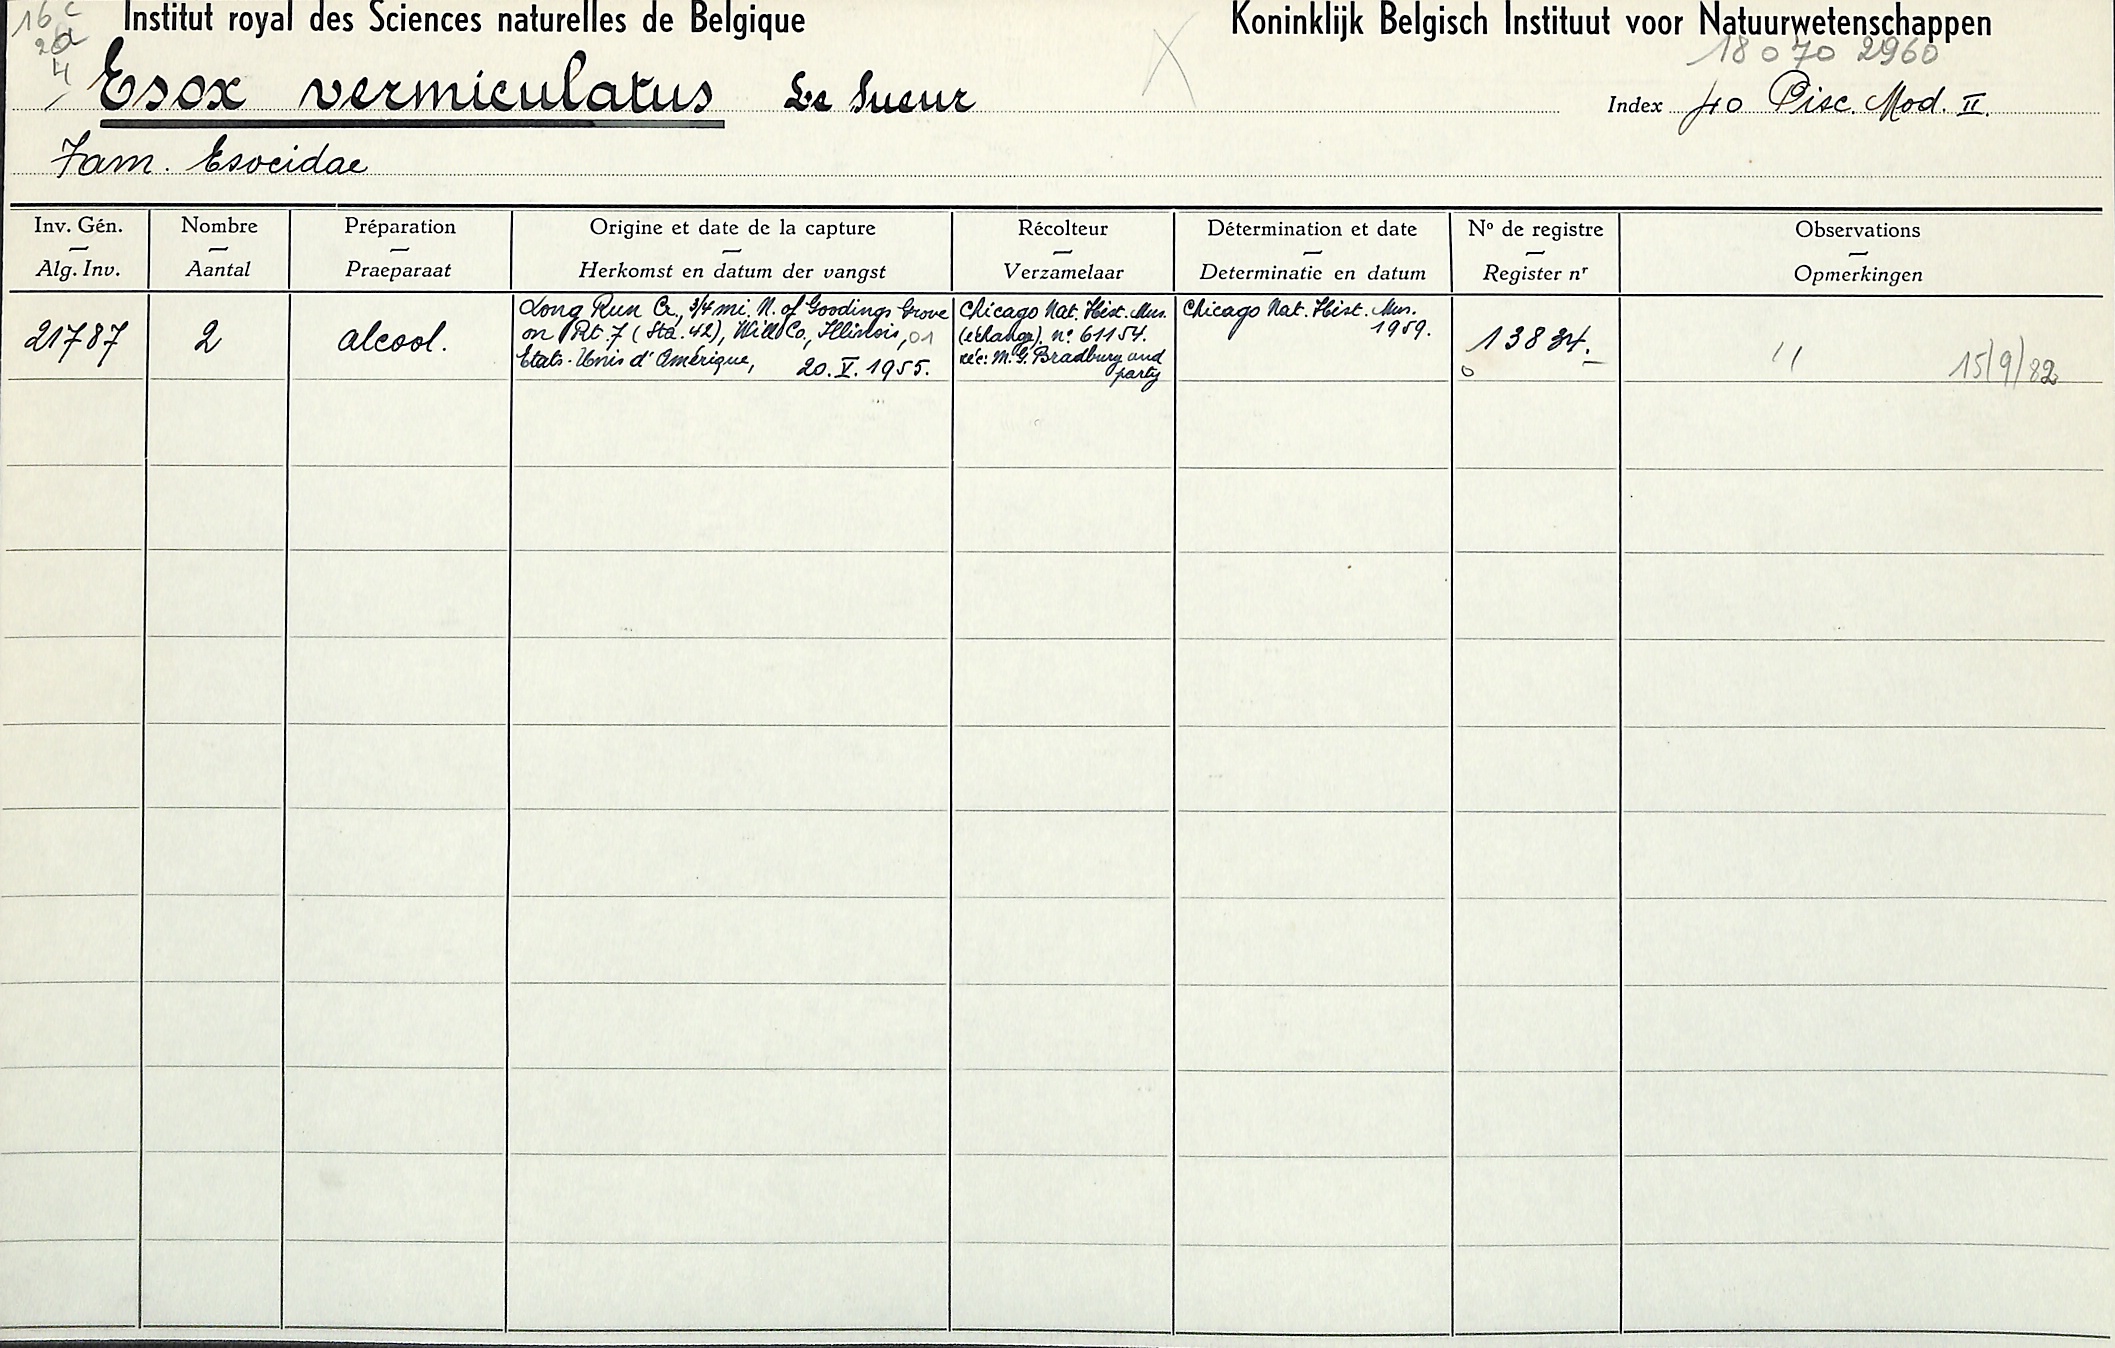 16 c
2 a
4
Institut royal des Sciences naturelles de Belgique
Koninklijk Belgisch Instituut voor Natuurwetenschappen
18 070 2960
Esox vermiculatus Le Sueur
X
Index 40 Pisc. Mod. II.
Fam. Esocidae
Inv. Gén. Nombre Préparation Origine et date de la capture Récolteur Détermination et date Nº de registre Observations
Alg. Inv. Aantal Praeparaat Herkomst en datum der vangst Verzamelaar Determinatie en datum Register nʳ Opmerkingen
21787
2
alcool.
Long Run Cr., 3/4 mi. N. of Goodings Grove
on Rt. 7 (Sta. 42), Will Co, Illinois, 01
Etats-Unis d'Amérique, 20.V.1955.
Chicago Nat. Hist. Mus.
(échange). nº 61154.
réc: M.G. Bradbury and
party
Chicago Nat. Hist. Mus.
1959.
13834.
0
//
15/9/82